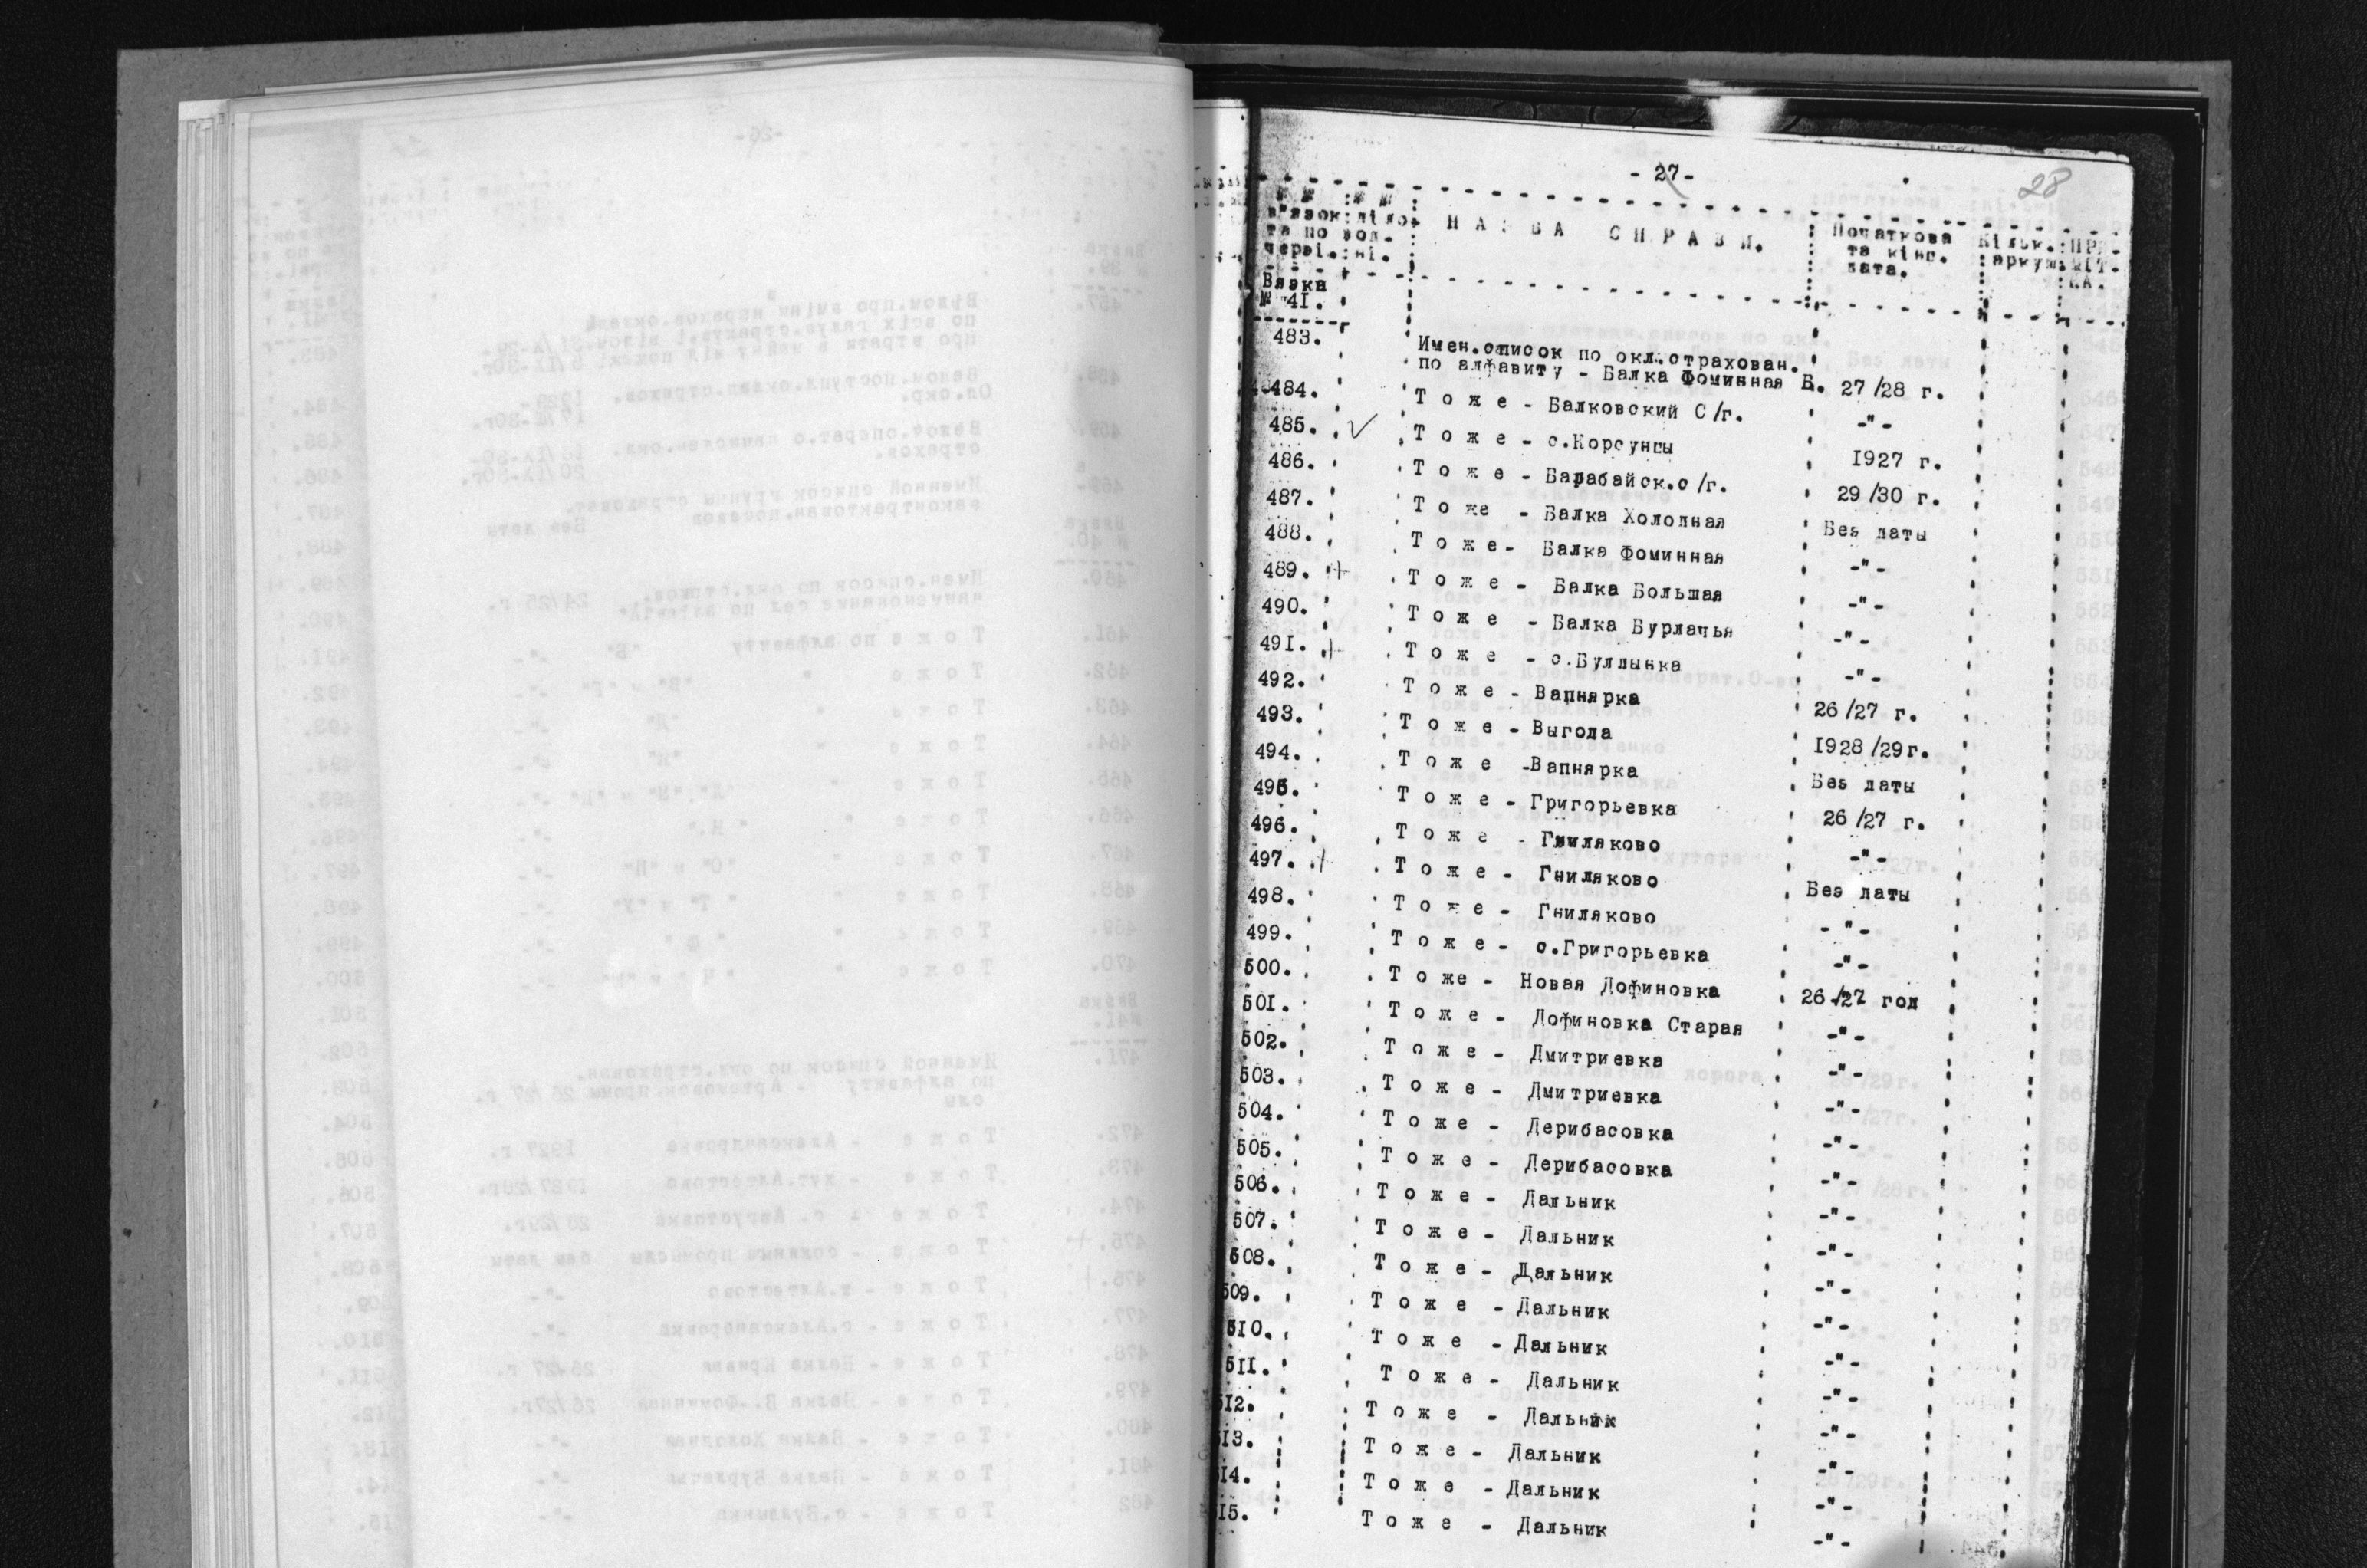 - 27 -
28
№№ : №№ :
в"язок:діло-
та по вод- : Н А З В А С П Р А В И. : Початкова : Кільк. : ПРИ-
черзі.: ні. та кінц. аркуш: МІТ-
дата. КА.
Вязка
№ 41.
483. Имен.список по окл.страхован.
по алфавиту - Балка Фоминная Б. 27/28 г.
484. Т о ж е - Балковский С/г. -"-
485. √ Т о ж е - с.Корсунцы 1927 г.
486. Т о ж е - Барабайск.с/г. 29/30 г.
487. Т о же - Балка Холодная Без даты
488. Т о ж е- Балка Фоминная -"-
489. + Т о ж е - Балка Большая -"-
490. Т о ж е - Балка Бурлачья -"-
491. + Т о ж е - с.Булдынка -"-
492. Т о ж е - Вапнярка 26/27 г.
493. Т о ж е - Выгода 1928/29г.
494. Т о ж е -Вапнярка Без даты
495. Т о ж е - Григорьевка 26/27 г.
496. Т о ж е - Гниляково -"-
497. + Т о ж е - Гниляково Без даты
498. Т о ж е - Гниляково -"-
499. Т о ж е - с.Григорьевка -"-
500. Т о же - Новая Дофиновка 26/27 год
501. Т о ж е - Дофиновка Старая -"-
502. Т о ж е - Дмитриевка -"-
503. Т о ж е - Дмитриевка -"-
504. Т о ж е - Дерибасовка -"-
505. Т о ж е - Дерибасовка -"-
506. Т о ж е - Дальник -"-
507. Т о ж е - Дальник -"-
508. Т о ж е - Дальник -"-
509. Т о ж е - Дальник -"-
510. Т о ж е - Дальник -"-
511. Т о ж е - Дальник -"-
512. Т о ж е - Дальник -"-
513. Т о ж е - Дальник -"-
514. Т о ж е - Дальник -"-
515. Т о ж е - Дальник -"-